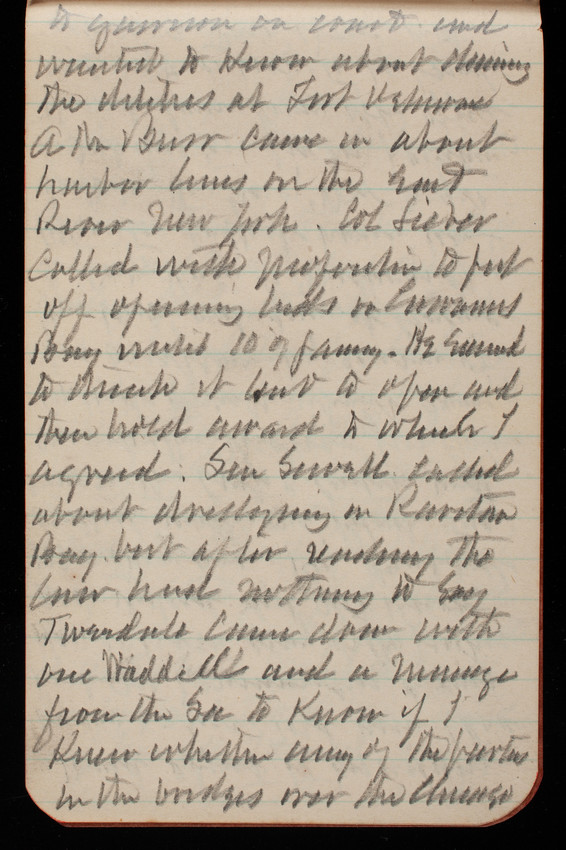 to garrison on coast and
wanted to know about
the ditches at Fort
A Mr Burr came in about
harbor lines on the East
River New York. Col
Called with proposition to put
off opening bids on
Bay until 10 of January. He seemed
to think it best to open and
then hold award to which I
agreed. Gen Sewell called
about dredging in Raritan
Bay but after reading the
law had nothing to say
Tweedale came down with
one Waddell and a message
from the Sec to know if I
knew whether any of the parties
in the bridges over the Chicago